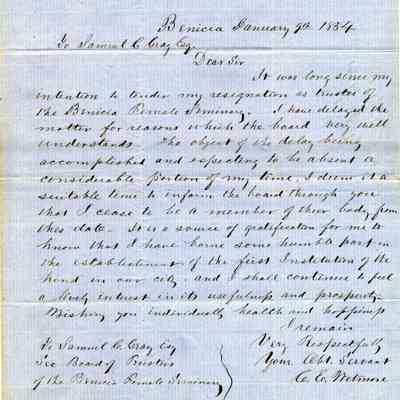 Benicia January 9th 1854
To Samuel C Gray Esq
Dear Sir
It was long since my
intention to tender my resignation as trustee of
the Benicia Female Seminary. I have delayed the
matter for reasons which the board very well
understands - The object of the delay being
accomplished and expecting to be absent a
considerable portion of my time I deem it a
suitable time to inform the board through you
that I cease to be a member of their body from
this date - It is a source of gratification for me to
know that I have borne some humble part in
the establishment of the first Institution of the
kind in our city - and I shall continue to feel
a lively interest in its usefulness and prosperity -
Wishing you individually health and happiness
I remain
Very Respectfully
Your Obt. Servant
C. E. Wetmore
To Samuel C. Gray Esq
Sec Board of Trustees
of the Benicia Female Seminary